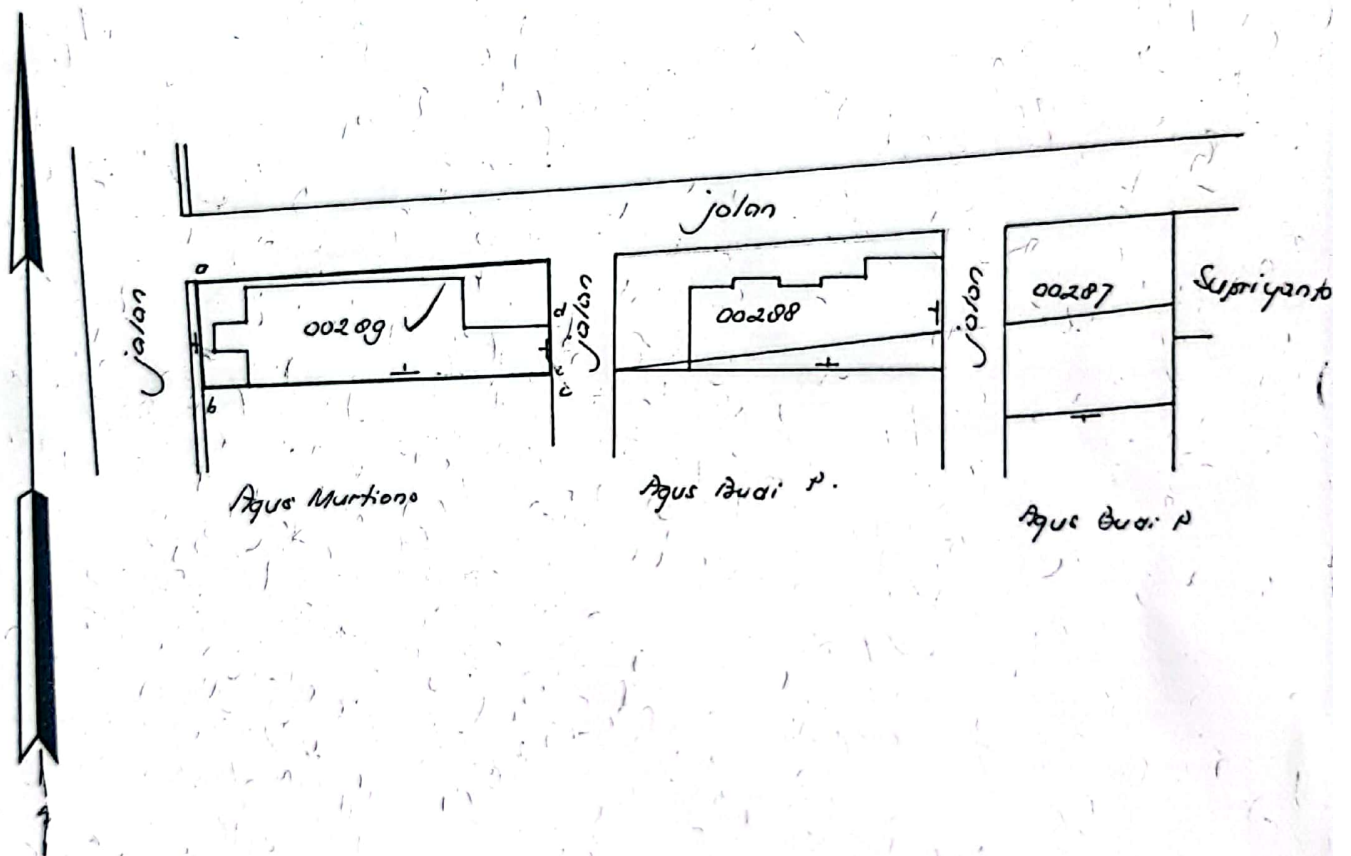 jalan
a
jalan
00289
d
jalan
c
b
00288
jalan
00287
Supriyanto
Agus Murtiono
Agus Budi P.
Agus Budi P